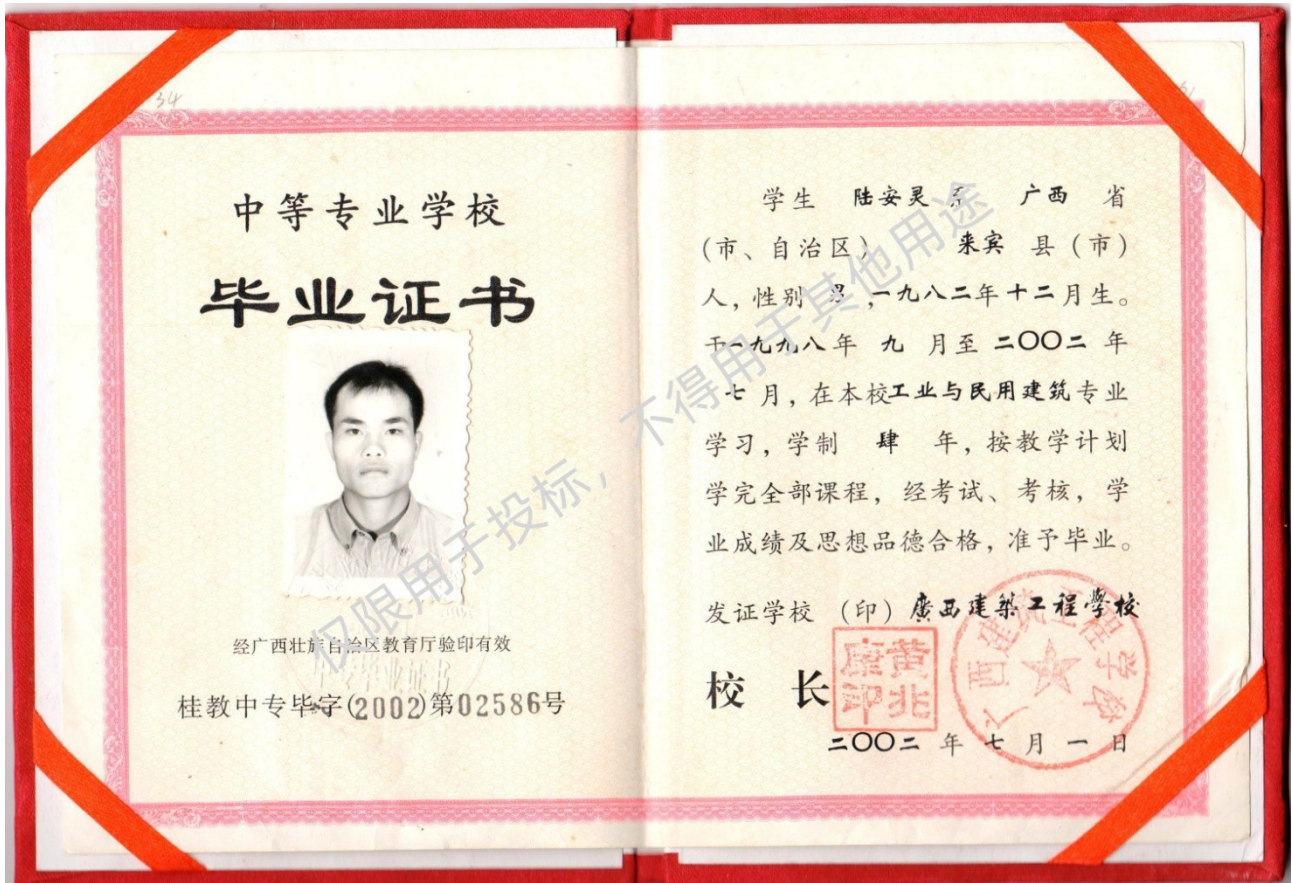 34
中等专业学校
毕业证书
经广西壮族自治区教育厅验印有效
桂教中专毕字(2002)第02586号
学生 陆安灵 系 广西 省
(市、自治区) 来宾 县(市)
人,性别 男,一九八二年十二月生。
于一九九八年 九 月至 二〇〇二 年
七 月,在本校工业与民用建筑专业
学习,学制 肆 年,按教学计划
学完全部课程,经考试、考核,学
业成绩及思想品德合格,准予毕业。
发证学校 (印) 廣西建築工程學校
校 长
黄兆康印
广西建筑工程学校
二〇〇二 年 七 月 一 日
仅限用于投标,不得用于其他用途